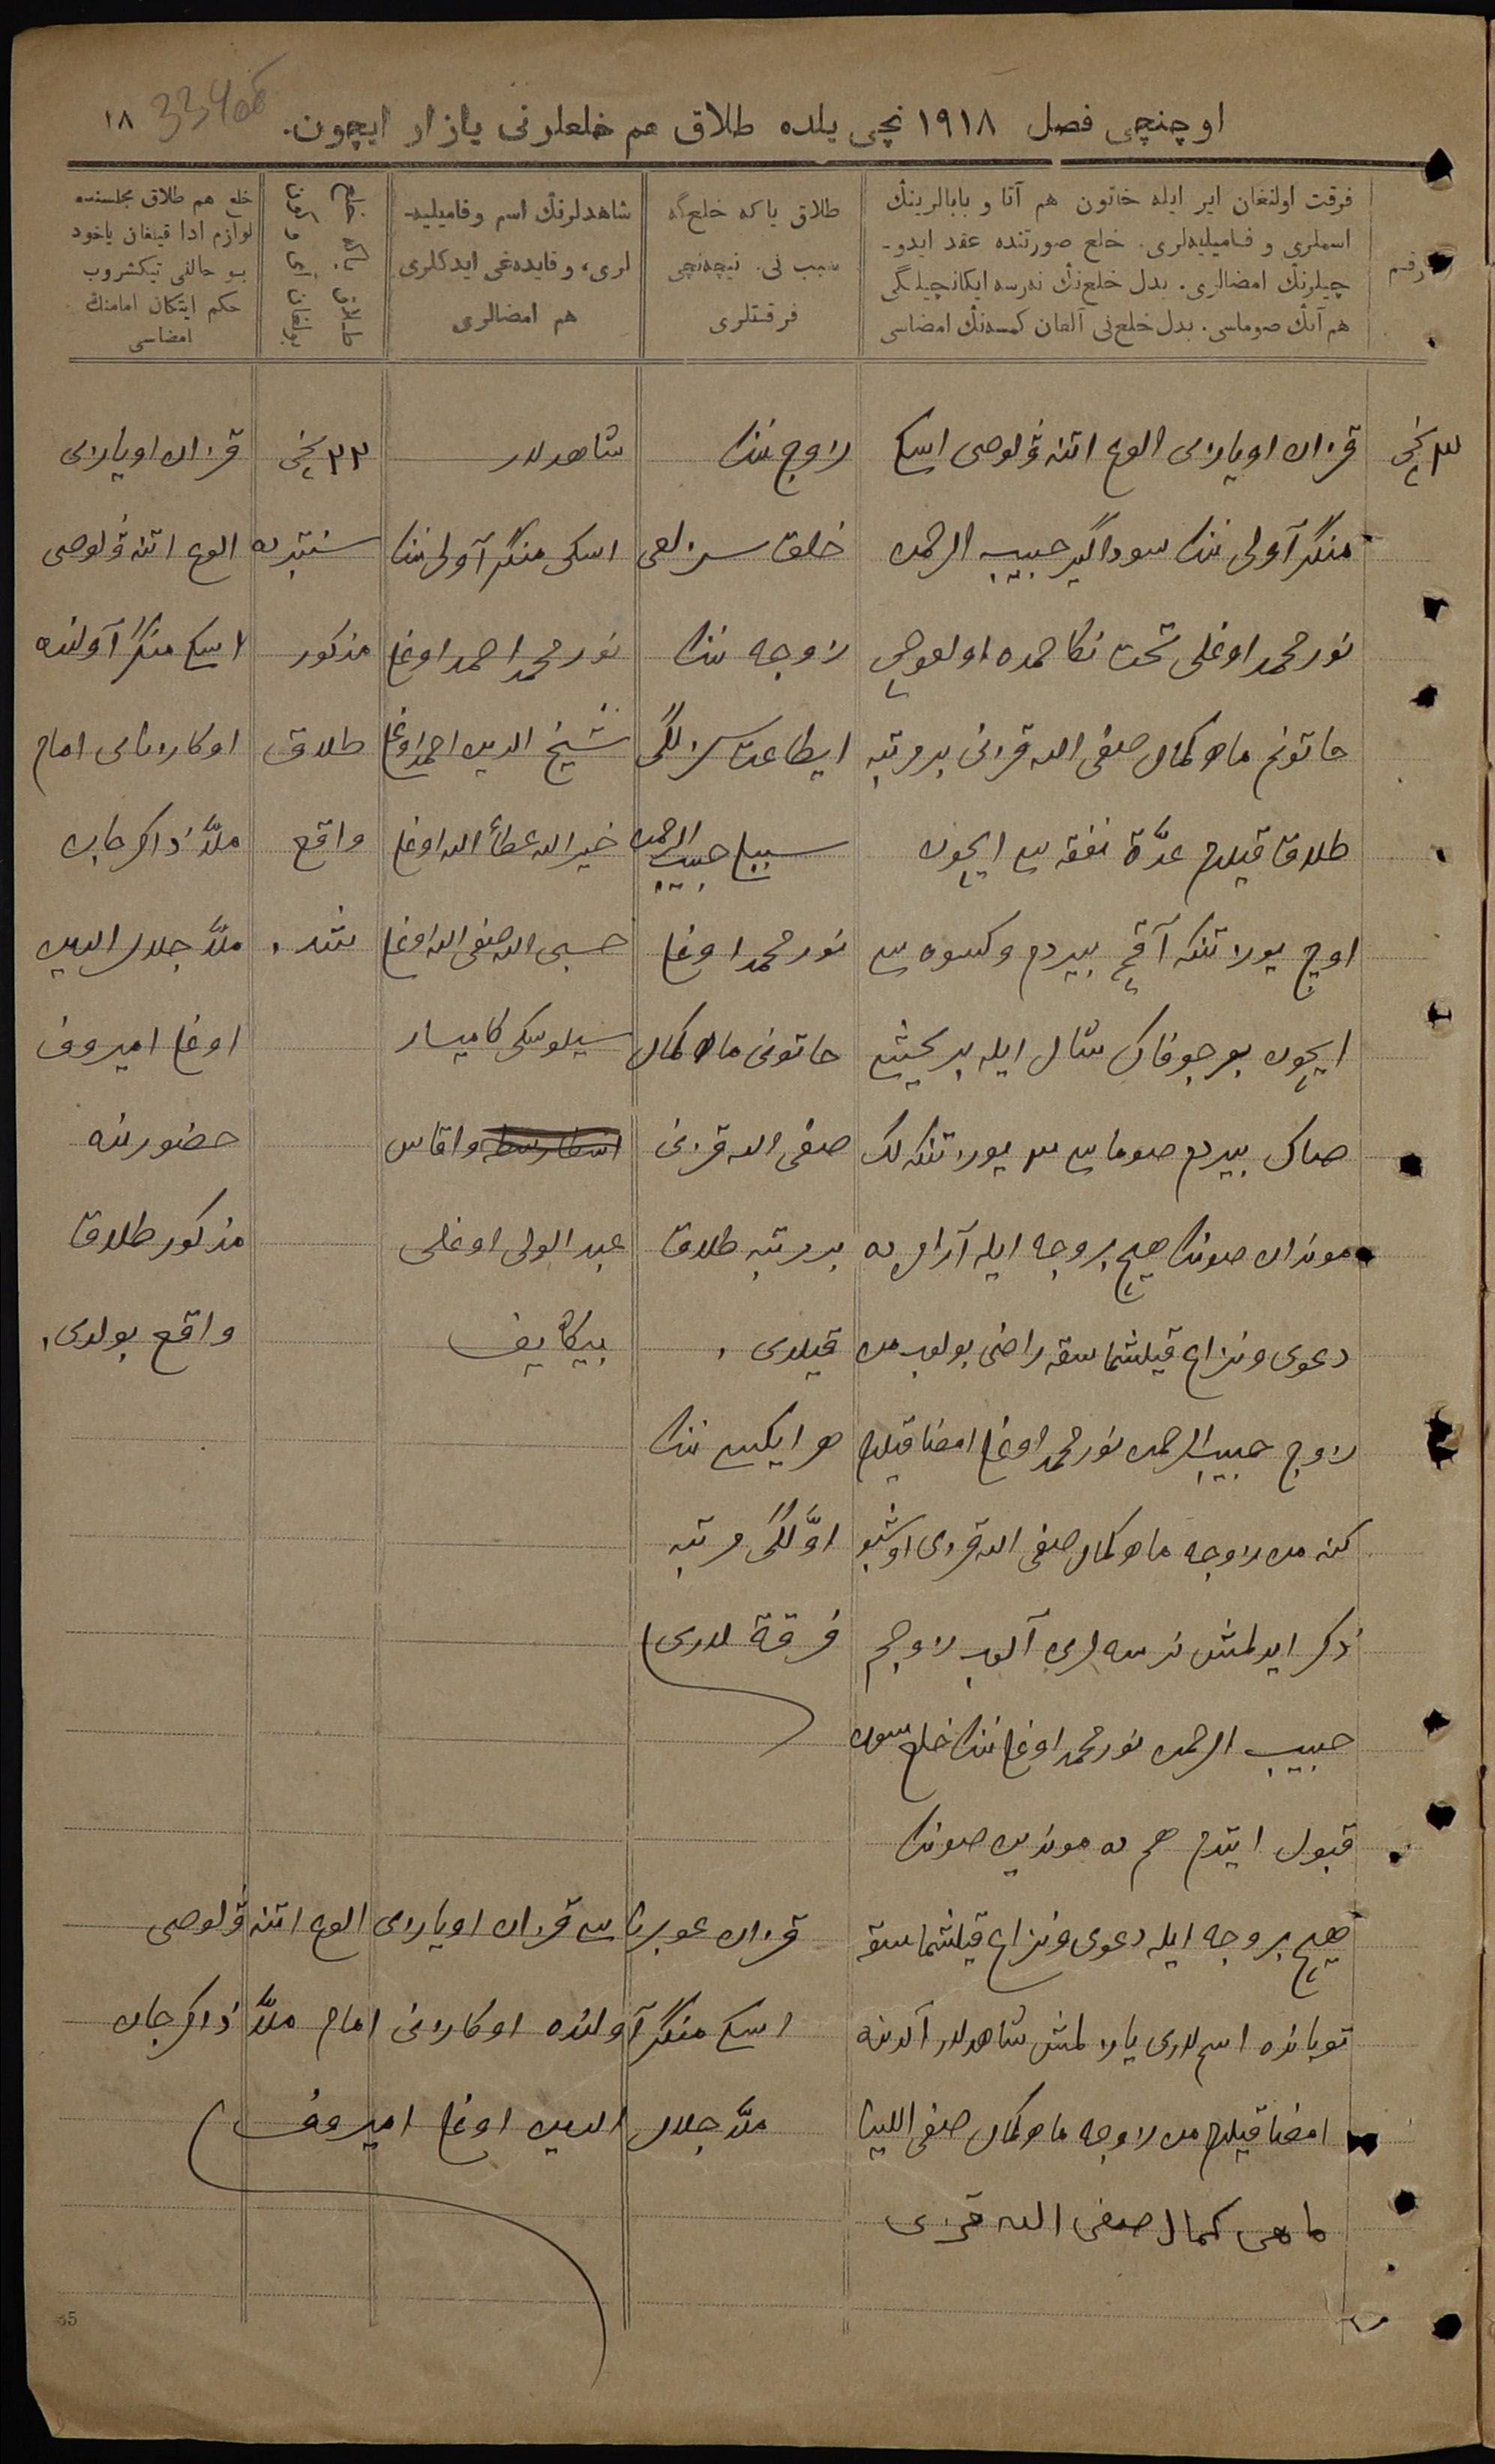 اوچنچی فصل ١٩١٨ نچی یلده طلاق هم خلعلرنی یازار ایچون.
١٨
334об
رقم
فرقت اولنغان ایر ایله خاتون هم آتا و بابالرینڭ
اسملری و فامیلیه‌لری. خلع صورتنده عقد ایدو-
چیلرنڭ امضالری. بدل خلع‌نڭ نه‌رسه ایکانچیلگی
هم آنڭ صوماسی. بدل خلع‌نی آلغان کمسه‌نڭ امضاسی
طلاق یا که خلع‌گه
سبب نی. نیچه‌نچی
فرقتلری
شاهدلرنڭ اسم وفامیلیه-
لری، و قایده‌غی ایدکلری
هم امضالری
طلاق یا که خلع
بولغان آی و کون
خلع هم طلاق مجلسنده
لوازم ادا قیلغان یاخود
بو حالنی تیکشروب
حکم ایتکان امامنڭ
امضاسی
٣ نچی
قزان اویازی الوغ اتنه ڤولوصی اسکی
منگر آولی ننڭ سوداگیر حبیب الرحمن
نورمحمد اوغلی تحت نکاحمده اولغوچی
خاتونم ماه کمال صفی الله قزنی بر مرتبه
طلاق قیلدم عدّة نفقه سی ایچون
اوچ یوز تنکه آقچه بیردم وکسوه سی
ایچون بر جوفاک شال ایله بر
صاک بیردم صوماسی ٣ یوز تنکه لک
موندان صونڭ هیچ بر وجه ایله آرامزده
دعوی ونزاع قیلشماسقه راضی بولوب من
زوج حبیب الرحمن نورمحمد اوغلی امضا قیلدم
کنه من زوجه ماه کمال صفی الله قزی اوشبو
ذکر ایدلمش نرسه لرنی آلوب زوجم
حبیب الرحمن نورمحمد اوغلی ننڭ خلع سون
قبول ایتدم هم ده موندین صونڭ
هیچ بر وجه ایله دعوی ونزاع قیلشماسقه
توبانده اسملری یازلمش شاهدلر آلدنده
امضا قیلدم من زوجه ماه کمال صفی اللینا
ماهی کمال صفی الله قزی
زوج ننڭ
خلق سزلغی
زوجه ننڭ
ایطاعت سزلگی
سببلی حبیب الرحمن
نورمحمد اوغلی
خاتونی ماه کمال
صفی الله قزنی
بر مرتبه طلاق
قیلدی.
هر ایکیسی ننڭ
اوّلگی مرتبه
فرقة لری
شاهدلر
اسکی منگر آولی ننڭ
نورمحمد احمد اوغلی
شیخ الدین احمد اوغلی
خیرالله عطاء الله اوغلی
حسبی الله صفی الله اوغلی
سیلوسکی کامیسار
واقاس
عبدالولی اوغلی
بیکایف
٢٣ نچی
سنتبرده
مذکور
طلاق
واقع
قزان اویازی
الوغ اتنه ڤولوصی
اسکی منگر آولنده
اوکازنای امام
ملّا ذاکرجان
ملّا جلال الدین
اوغلی امیروف
حضورنده
مذکور طلاق
واقع بولدی.
قزان غوبرناسی قزان اویازی الوغ اتنه ڤولوصی
اسکی منگر آولنده اوکازنی امام ملّا ذاکرجان
ملّا جلال الدین اوغلی امیروف